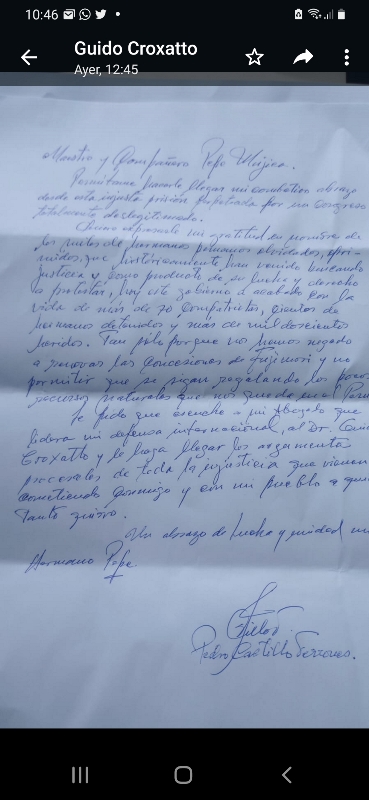 10:46
Guido Croxatto
Ayer, 12:45
Maestro y Compañero Pepe Mujica.
Permítame hacerle llegar mi combativo abrazo
desde esta injusta prisión perpetrada por un congreso
totalmente deslegitimado.
Quiero expresarle mi gratitud en nombre de
los miles de hermanos peruanos olvidados, opri-
midos, que históricamente han venido buscando
justicia y como producto de su lucha y derecho
a la protesta, hoy este gobierno a acabado con la
vida de más de 70 compatriotas, cientos de
hermanos detenidos y más de mil doscientos
heridos. Tan solo porque nos hemos negado
a renovar las concesiones de Fujimori y no
permitir que se sigan regalando los pocos
recursos naturales que nos queda en el Perú
Le pido que escuche a mi abogado que
lidera mi defensa internacional, al Dr. Gui
Croxatto y le haga llegar los argumentos
procesales de toda la injusticia que vienen
cometiendo conmigo y con mi pueblo a que
tanto quiero.
Un abrazo de lucha y unidad mi
Hermano Pepe
Pedro Castillo Terrones.